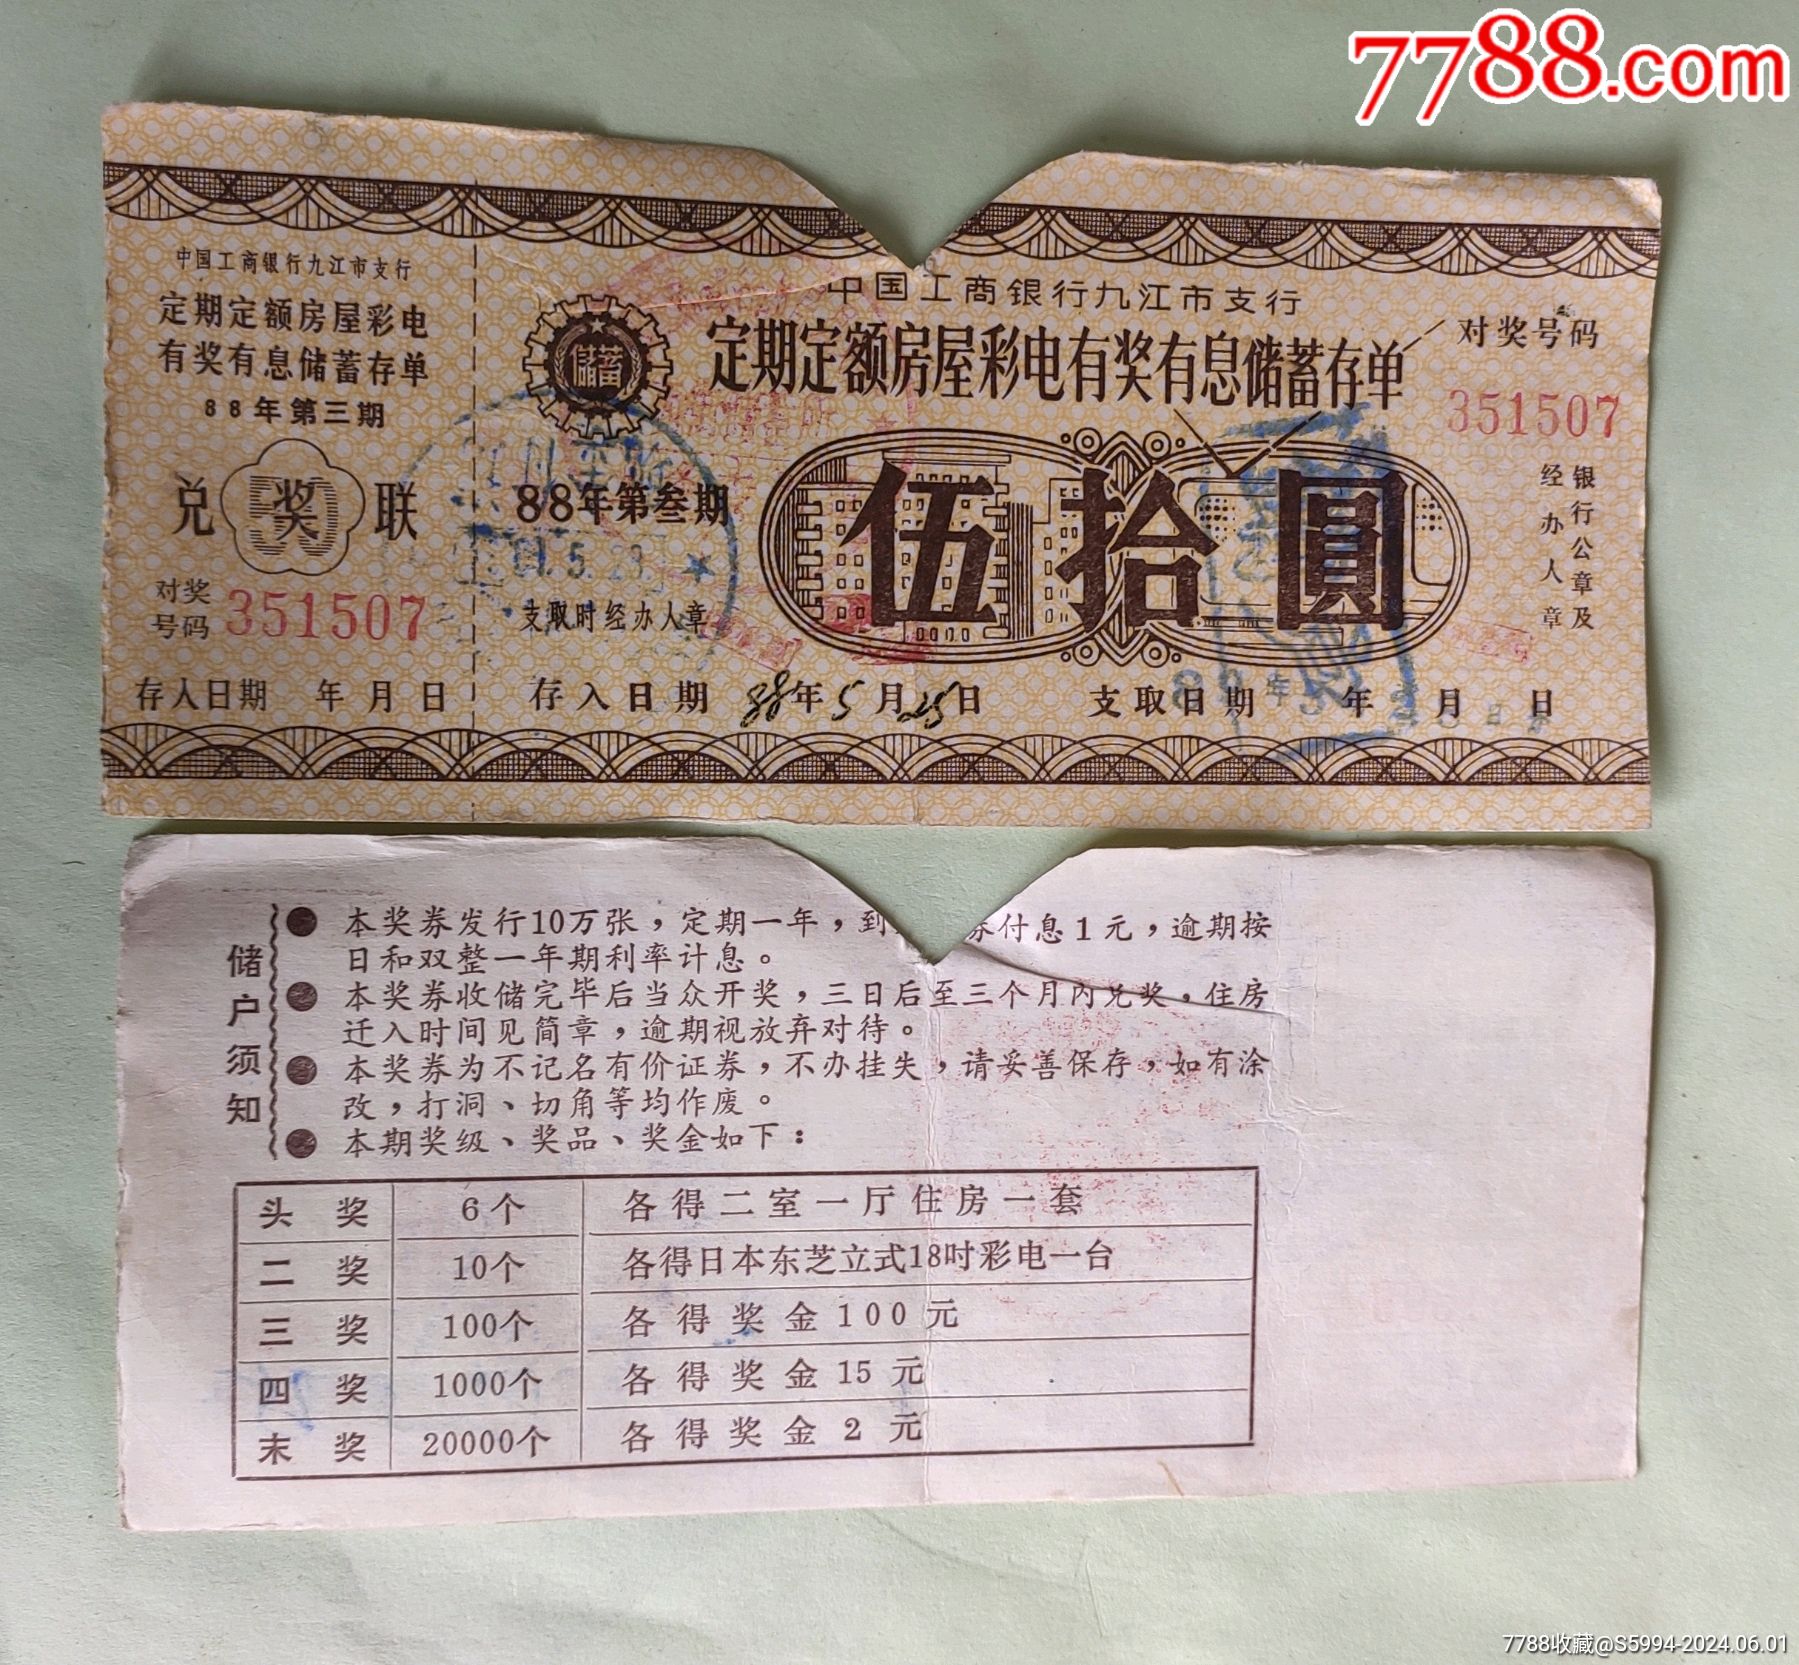 7788.com
中国工商银行九江市支行
定期定额房屋彩电
有奖有息储蓄存单
88年第三期
兑奖联
50
对奖
号码 351507
存入日期 年 月 日
储蓄
中国工商银行九江市支行
定期定额房屋彩电有奖有息储蓄存单
88年第叁期
支取时经办人章
伍拾圆
对奖号码
351507
银行公章及
经办人章
存入日期 88年5月25日
支取日期 年 月 日
储户须知
本奖券发行10万张，定期一年，到 券付息1元，逾期按
日和双整一年期利率计息。
本奖券收储完毕后当众开奖，三日后至三个月内兑奖，住房
迁入时间见简章，逾期视放弃对待。
本奖券为不记名有价证券，不办挂失，请妥善保存，如有涂
改，打洞、切角等均作废。
本期奖级、奖品、奖金如下：
头奖 6个 各得二室一厅住房一套
二奖 10个 各得日本东芝立式18吋彩电一台
三奖 100个 各得奖金100元
四奖 1000个 各得奖金15元
末奖 20000个 各得奖金2元
7788收藏@S5994-2024.06.01